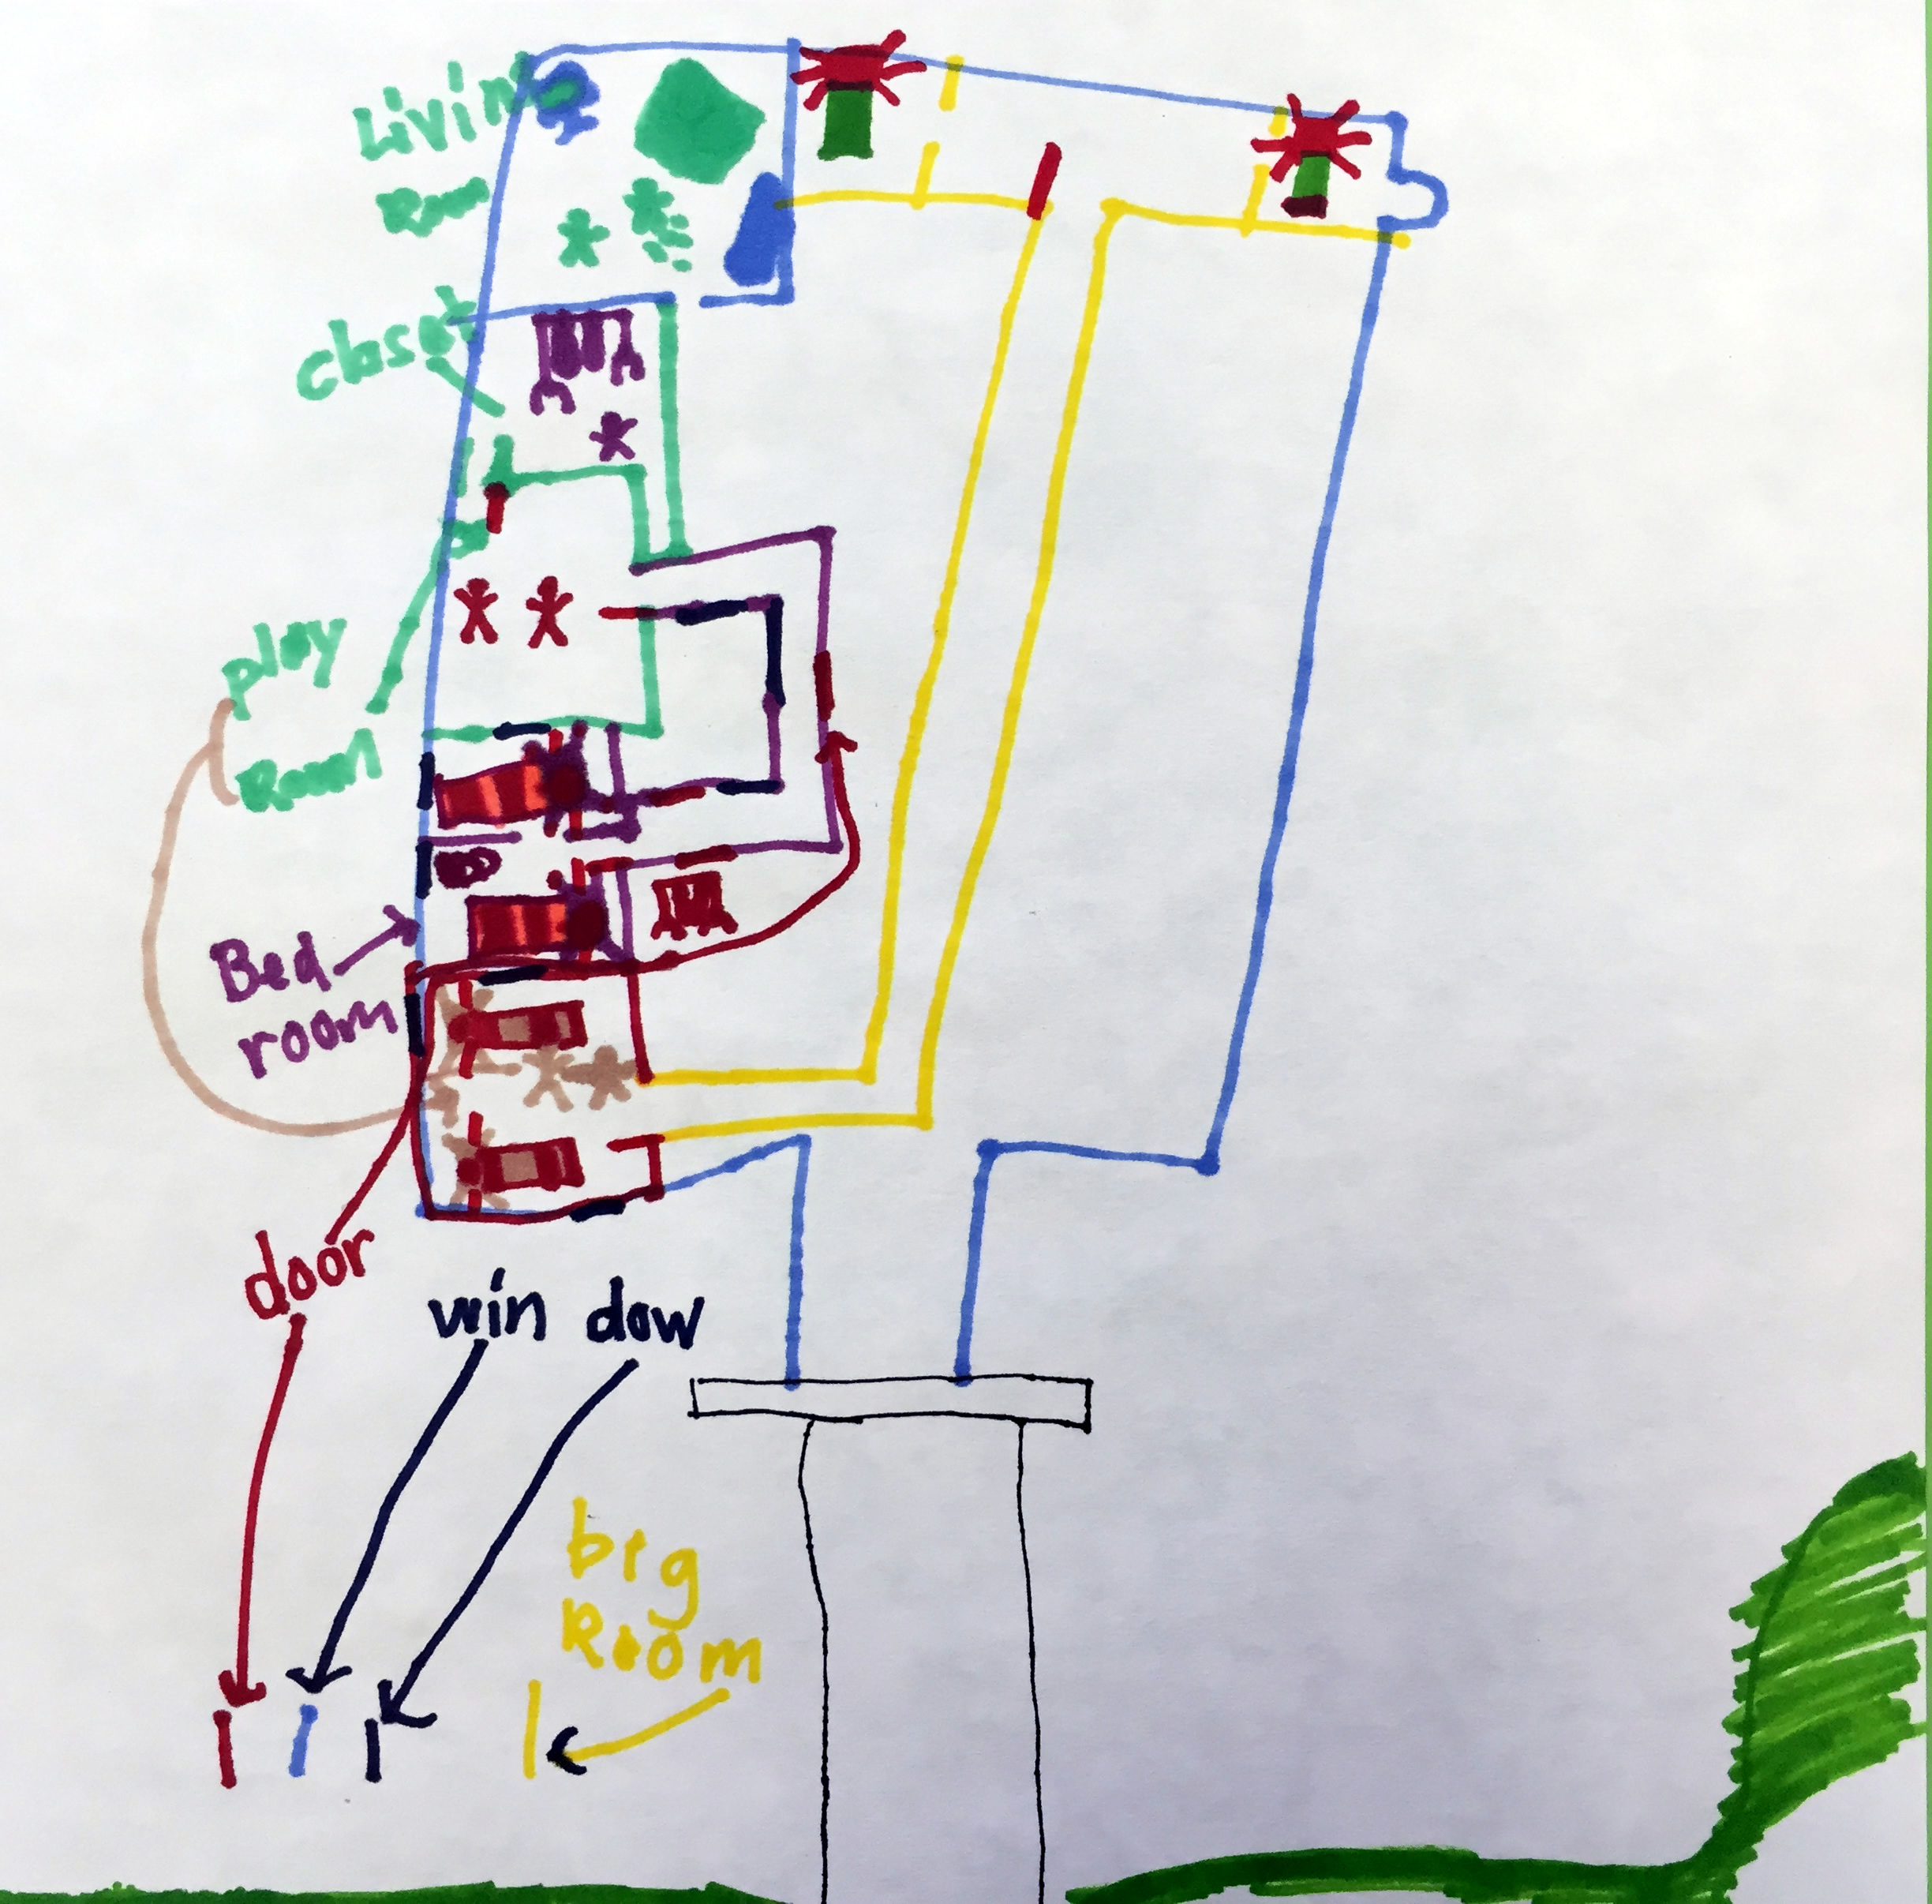 Living
Room
closet
play
Room
Bed
room
door
win dow
big
Room